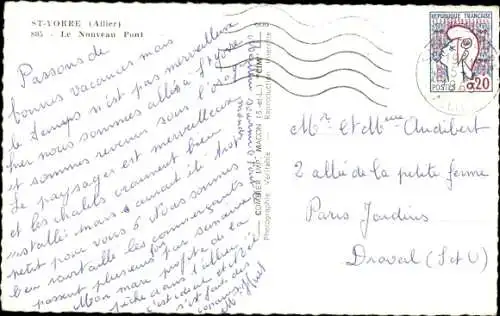 ST-YORRE (Allier)
805 - Le Nouveau Pont
Passons de
bonnes vacances mais
le temps n'est pas merveilleux
hier nous sommes allés à
et sommes revenus sous l'
Le paysage est merveilleux
et les chalets vraiment bien
installés mais aurait été
petit pour vous 5 Nous sommes
bien ravitaillés les commerçants
passent plusieurs fois par semaine
Mon mari profite de la
pêche dans l'Allier
c'est idéal et
s'est fait des
COMBIER IMP. MACON (S.-et-L.) "CIM"
Photographie Véritable - Reproduction interdite
REPUBLIQUE FRANÇAISE
POSTES 0,20
Mr et Mme Audibert
2 allée de la petite ferme
Paris Jardins
Draveil (S et O)